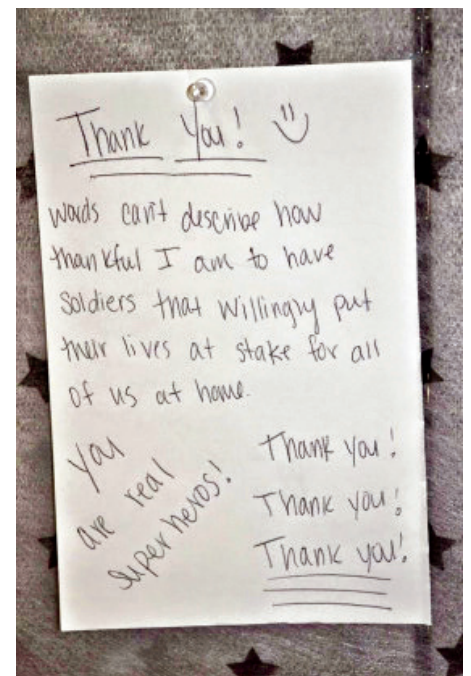 Thank You! :)
words can't describe how
thankful I am to have
soldiers that willingly put
their lives at stake for all
of us at home.
you
are real
super heros!
Thank you!
Thank you!
Thank you!